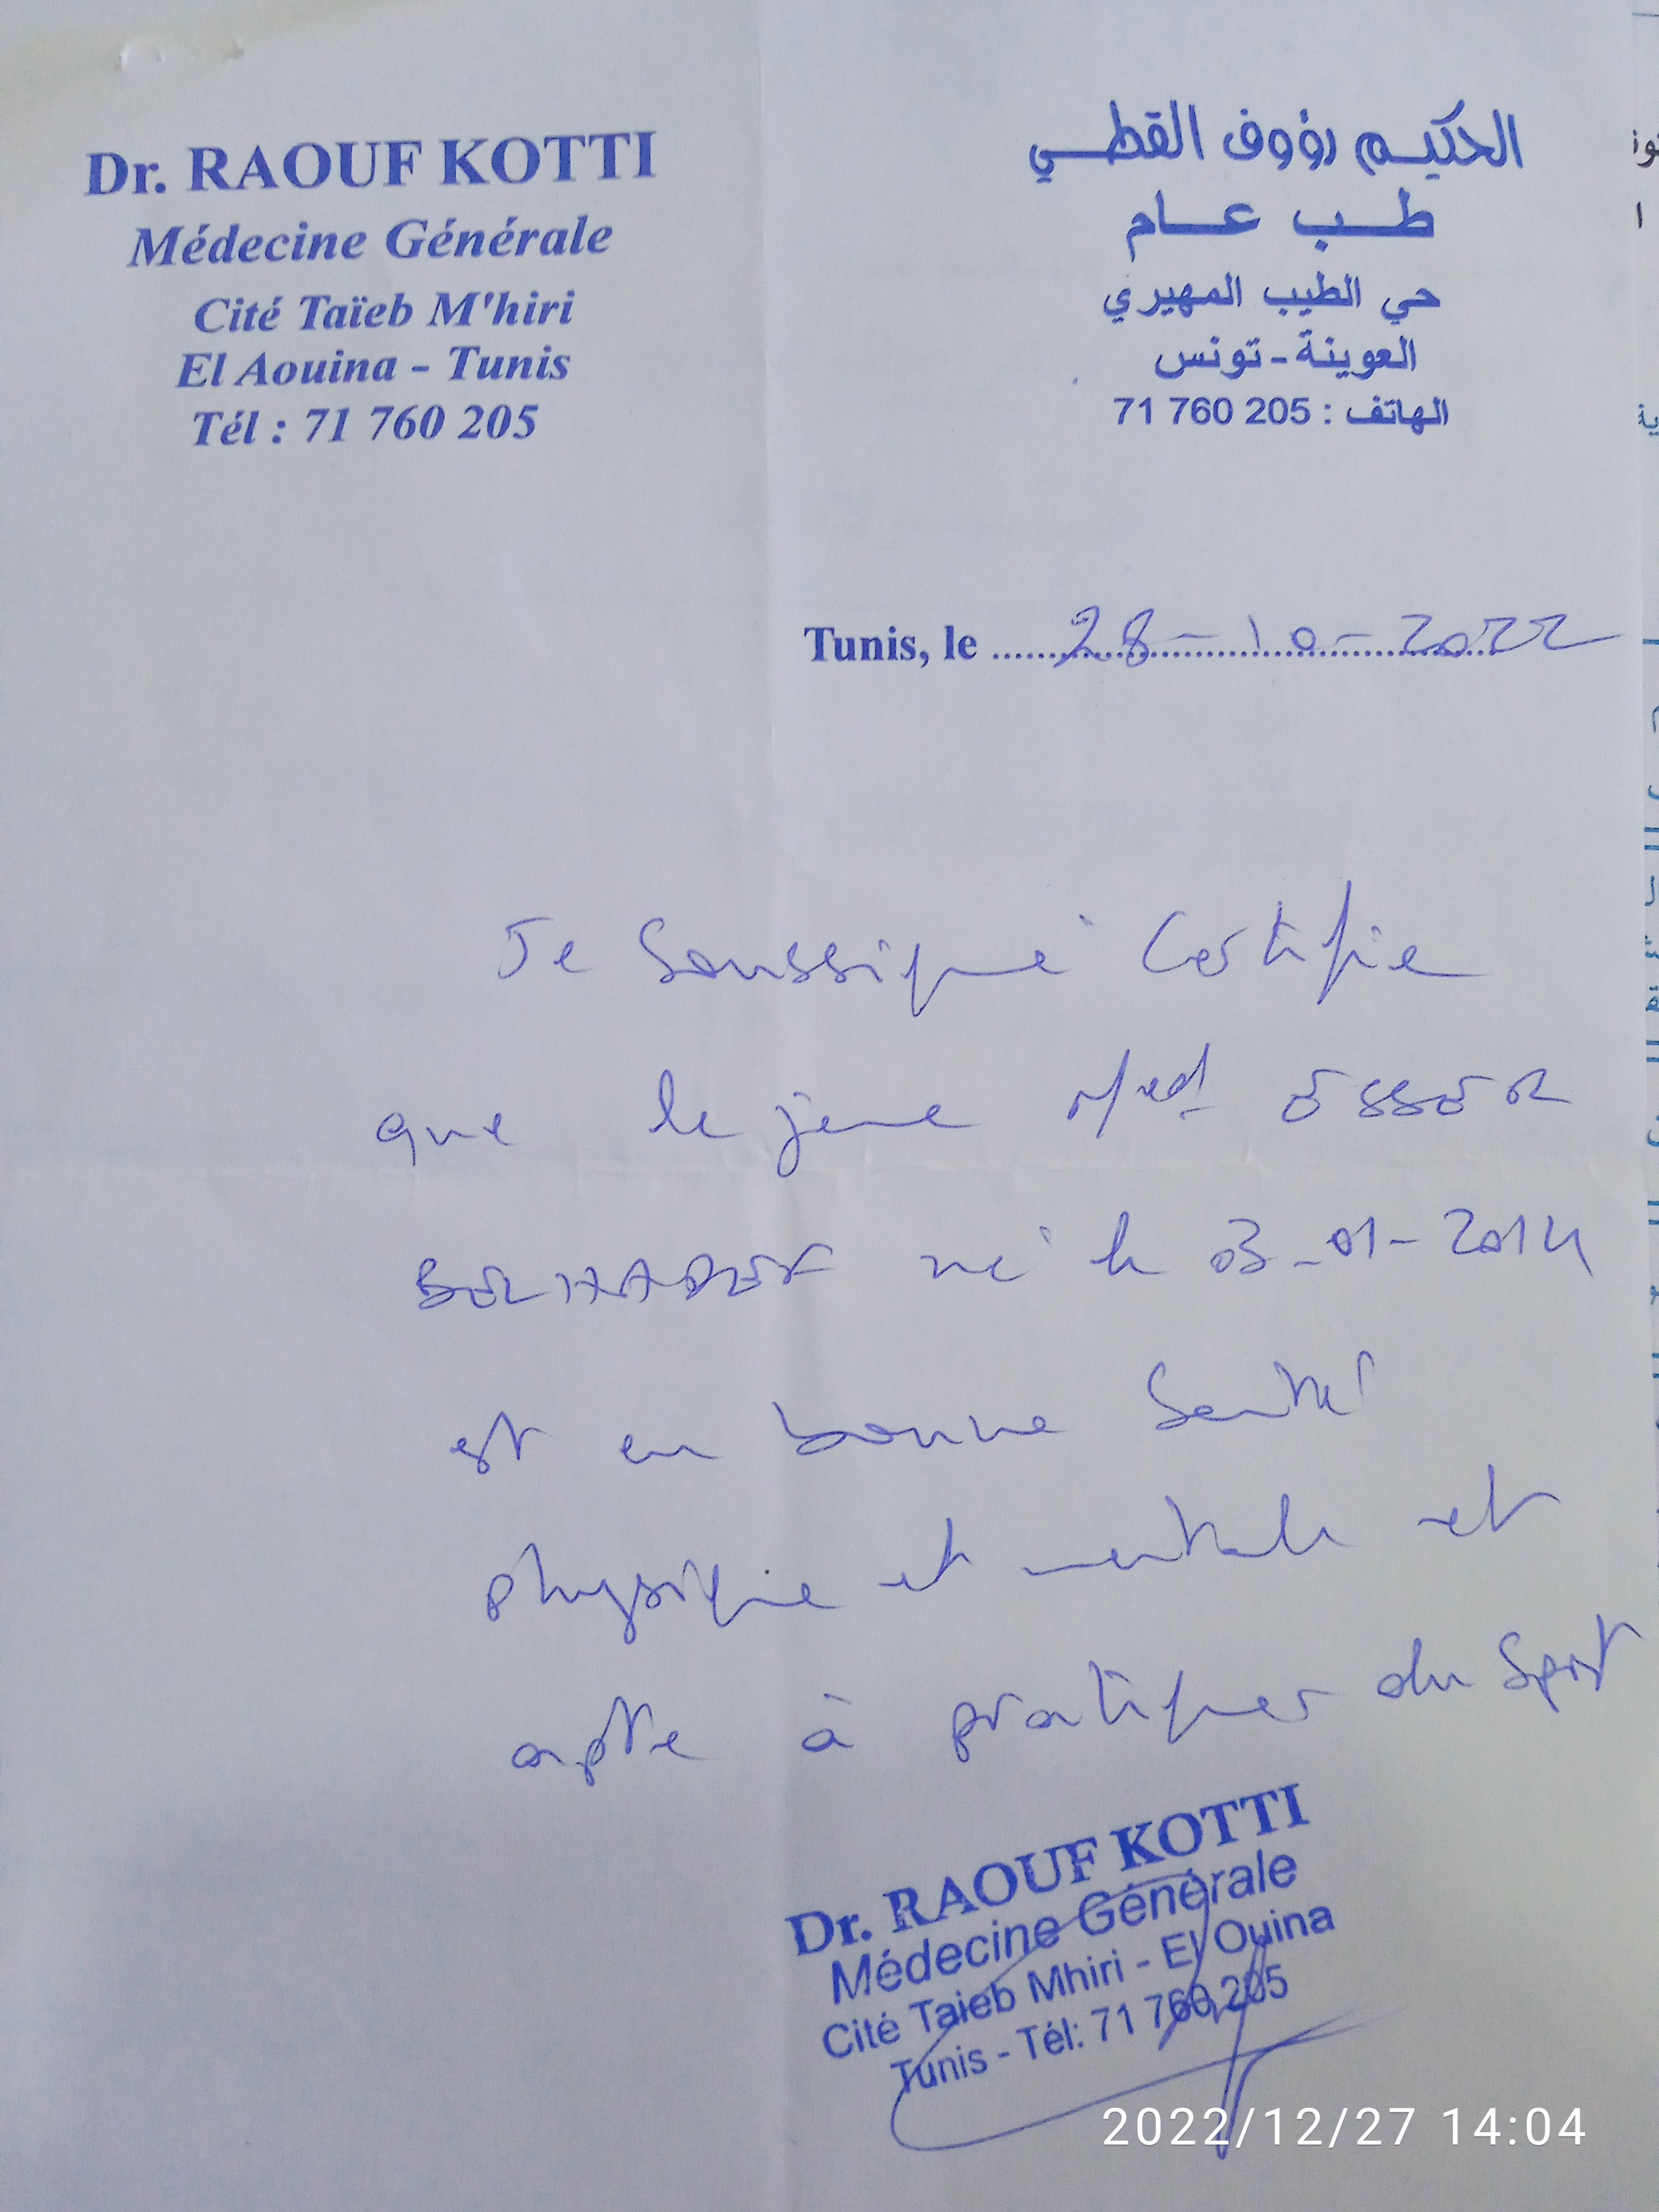 Dr. RAOUF KOTTI
Médecine Générale
Cité Taïeb M'hiri
El Aouina - Tunis
Tél : 71 760 205
الحكيم رؤوف القطي
طب عام
حي الطيب المهيري
العوينة - تونس
الهاتف : 205 760 71
Tunis, le 28-10-2022
Je soussigné certifie
que le jeune Med
né le 03-01-2014
est en bonne santé
physique et mentale et
apte à pratiquer du sport
Dr. RAOUF KOTTI
Médecine Générale
Cité Taieb Mhiri - El Ouina
Tunis - Tél: 71 760 205
2022/12/27 14:04